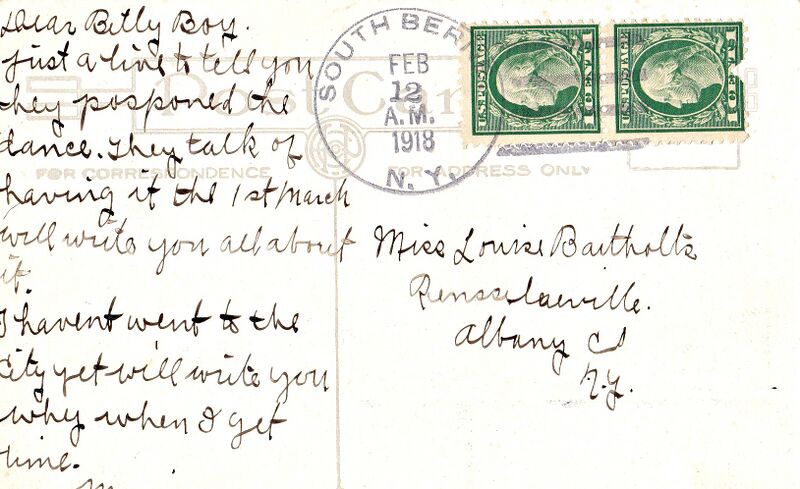 Dear Billy Boy.
Just a line to tell you
they posponed the
dance. They talk of
having it the 1st March
will write you all about
it.
I havent went to the
City yet will write you
why when I get
time.
M
Post Card
FOR CORRESPONDENCE
FOR ADDRESS ONLY
SOUTH BER
FEB
12
A.M.
1918
N.Y.
U.S. POSTAGE
1 CENT 1
U.S. POSTAGE
1 CENT 1
Miss Louise Bartholts
Rensselaerville.
Albany Co
N.Y.